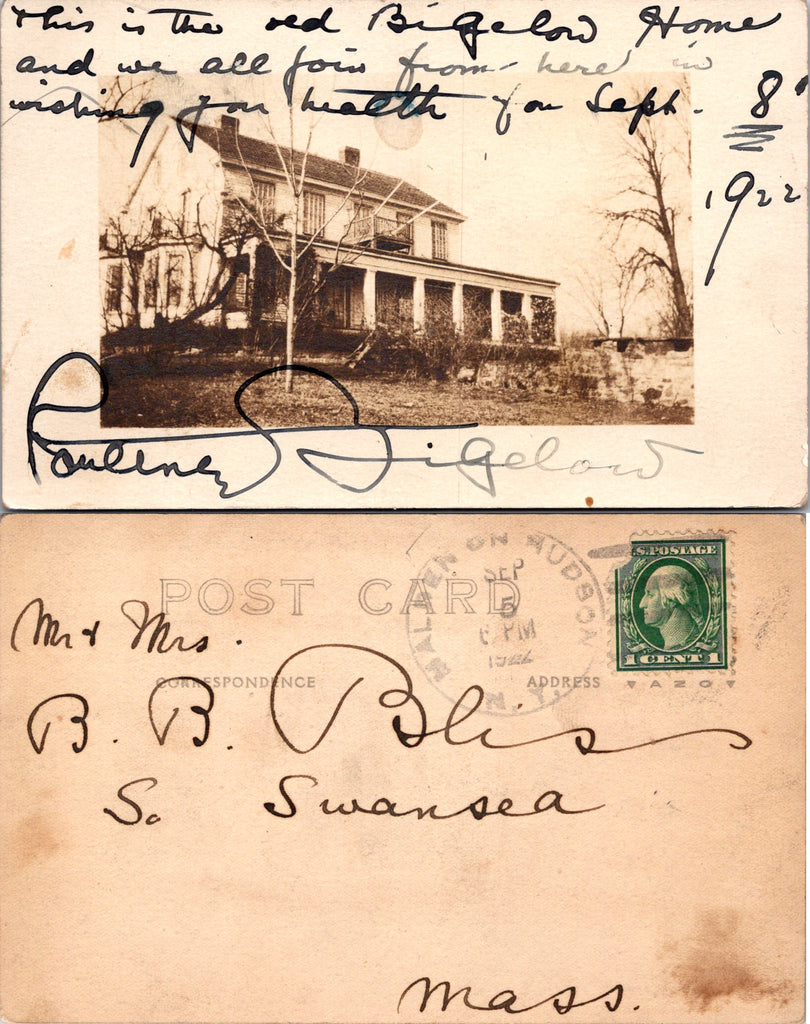 This is the old Bigelow Home
and we all join from here in
wishing you health for Sept. 8"
1922
Poultney Bigelow
POST CARD
MALDEN ON HUDSON
N.Y.
SEP
5
6 PM
1922
U.S. POSTAGE
1 CENT 1
CORRESPONDENCE
ADDRESS
AZO
Mr & Mrs.
B. B. Bliss
So Swansea
Mass.